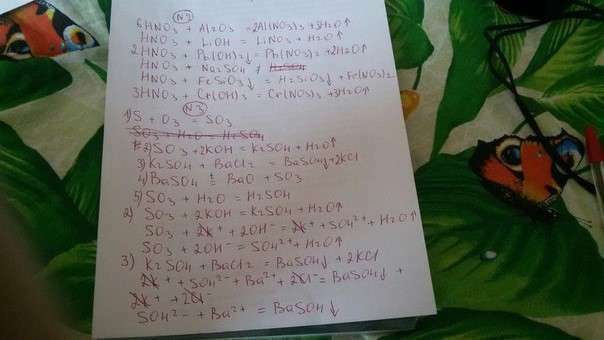 N2
6HNO3 + Al2O3 = 2Al(NO3)3 + 3H2O↑
HNO3 + LiOH = LiNO3 + H2O↑
2HNO3 + Pb(OH)2↓ = Pb(NO3)2 + 2H2O↑
HNO3 + Na2SO4 ≠
HNO3 + FeSiO3↓ = H2SiO3↓ + Fe(NO3)2
3HNO3 + Cr(OH)3 = Cr(NO3)3 + 3H2O↑
N3
1) S + O3 = SO3
SO3 + H2O = H2SO4
2) SO3 + 2KOH = K2SO4 + H2O↑
3) K2SO4 + BaCl2 = BaSO4↓ + 2KCl
4) BaSO4 t= BaO + SO3
5) SO3 + H2O = H2SO4
2) SO3 + 2KOH = K2SO4 + H2O↑
SO3 + 2K+ + 2OH- = 2K+ + SO4 2+ + H2O↑
SO3 + 2OH- = SO4 2+ + H2O↑
3) K2SO4 + BaCl2 = BaSO4↓ + 2KCl
2K+ + SO4 2- + Ba2+ + 2Cl- = BaSO4↓ +
2K+ + 2Cl-
SO4 2- + Ba2+ = BaSO4↓